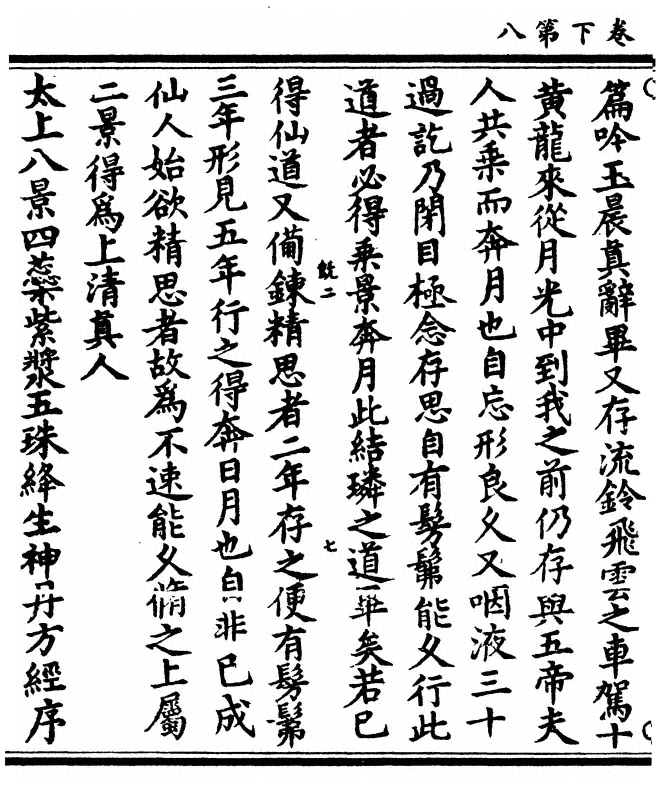 卷下第八
篇吟玉晨真辭畢又存流鈴飛雲之車駕十
黃龍來從月光中到我之前仍存與五帝夫
人共乘而奔月也自忘形良久又咽液三十
過訖乃閉目極念存思自有髣髴能久行此
道者必得乘景奔月此結璘之道畢矣若已
得仙道又備鍊精思者二年存之便有髣髴
三年形見五年行之得奔日月也自非已成
仙人始欲精思者故爲不速能久脩之上屬
二景得爲上清真人
太上八景四蘂紫漿五珠絳生神丹方經序
七